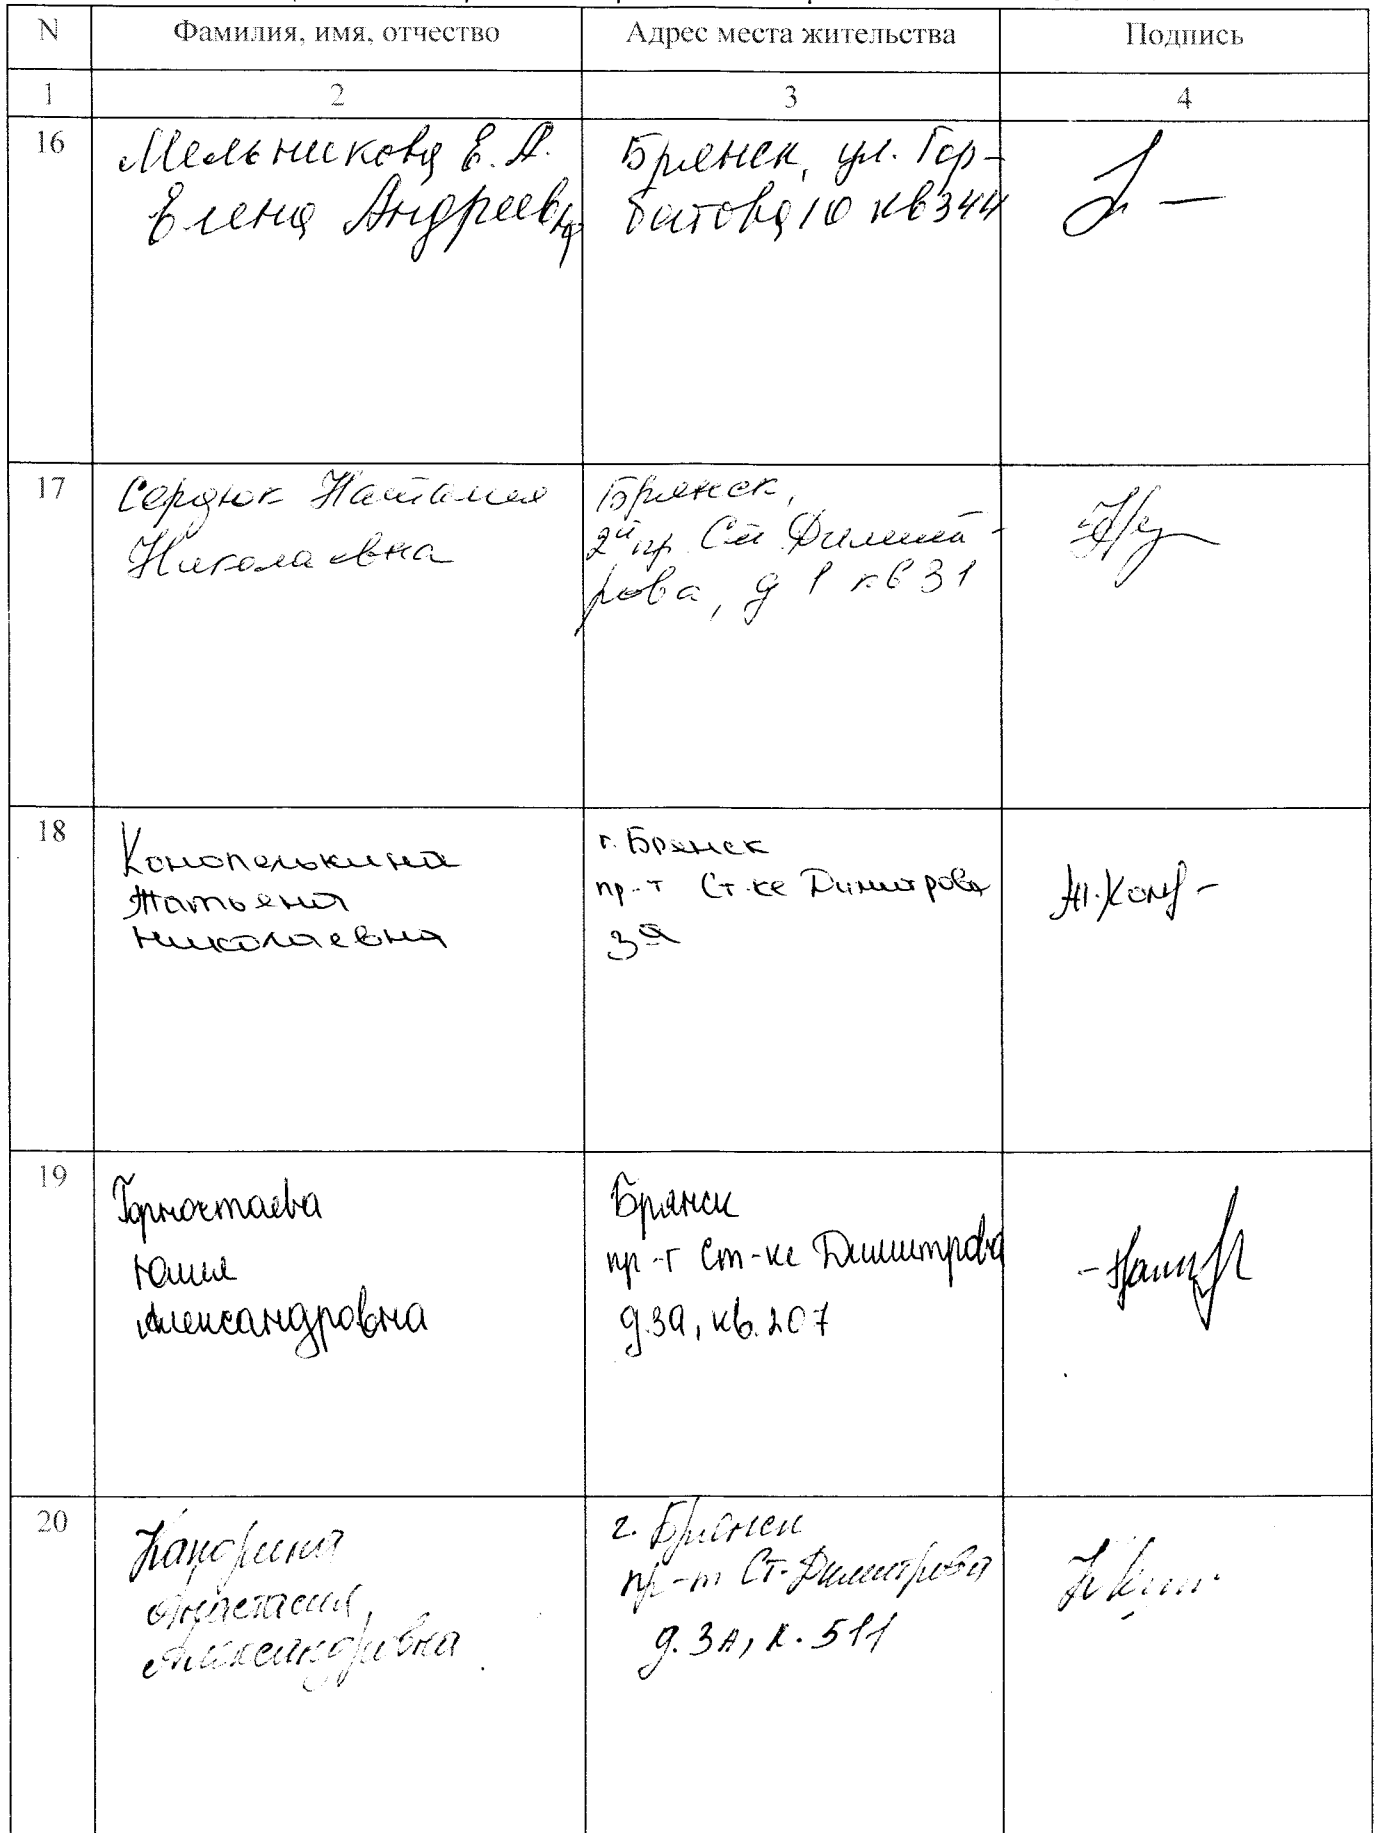 N Фамилия, имя, отчество Адрес места жительства Подпись
1 2 3 4
16
Мельникова Е. А.
Елена Андреевна
Брянск, ул. Гор-
батова 10 кв 344
17
Сердюк Наталия
Николаевна
Брянск,
2й пр. Ст Димит-
рова, д 1 кв 31
18
Конопелькина
Татьяна
Николаевна
г. Брянск
пр-т Ст-ке Димитрова
3а
19
Горностаева
Юлия
Александровна
Брянск
пр-т Ст-ке Димитрова
д.3а, кв. 207
20
Анастасия
Александровна
г. Брянск
пр-т Ст. Димитрова
д. 3А, к. 511